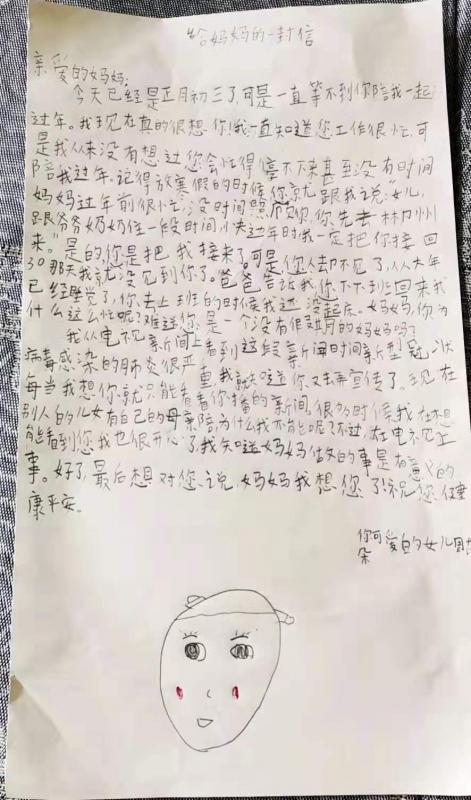 给妈妈的一封信
亲爱的妈妈:
今天已经是正月初三了,可是一直等不到你陪我一起
过年。我现在真的很想你!我一直知道您工作很忙,可
是我从来没有想过您会忙得停不下来甚至没有时间
陪我过年。记得放寒假的时候你就跟我说:"女儿,
妈妈过年前很忙,没时间照顾你,你先去林州
跟爷爷奶奶住一段时间,过年时我一定把你接回
来。"是的,你是把我接来了,可是您人却不见了,从大年
30那天我就没见到你了。爸爸告诉我,你下班回来我
已经睡觉了,你去上班的时候我还没起床。妈妈,你为
什么这么忙呢?难道您是一个没有假期的妈妈吗?
我从电视新闻上看到这段新闻时间新型冠状
病毒感染的肺炎很严重,我就知道你又去弄宣传了。现在
每当我想你就只能看看你播的新闻,很多时候我在想
别人的儿女有自己的母亲陪为什么我不能呢?不过,在电视上
能看到您我也很开心了,我知道妈妈做的事是有意义的
事。好了,最后想对您说,妈妈我想您了祝您健
康平安。
你可爱的女儿
朵